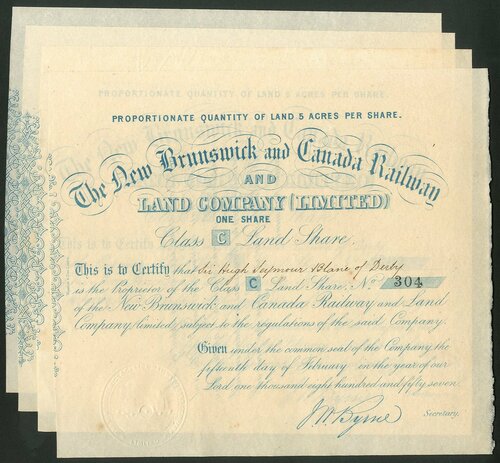 PROPORTIONATE QUANTITY OF LAND 5 ACRES PER SHARE.
PROPORTIONATE QUANTITY OF LAND 5 ACRES PER SHARE.
The New Brunswick and Canada Railway
AND
LAND COMPANY (LIMITED)
ONE SHARE
Class C Land Share.
This is to Certify that Sir Hugh Seymour Blane of Derby
is the Proprietor of the Class C Land Share, No. 304
of the New Brunswick and Canada Railway and Land
Company limited, subject to the regulations of the said Company.
Given under the common seal of the Company the
fifteenth day of February in the year of our
Lord one thousand eight hundred and fifty seven.
J W Byrne Secretary.